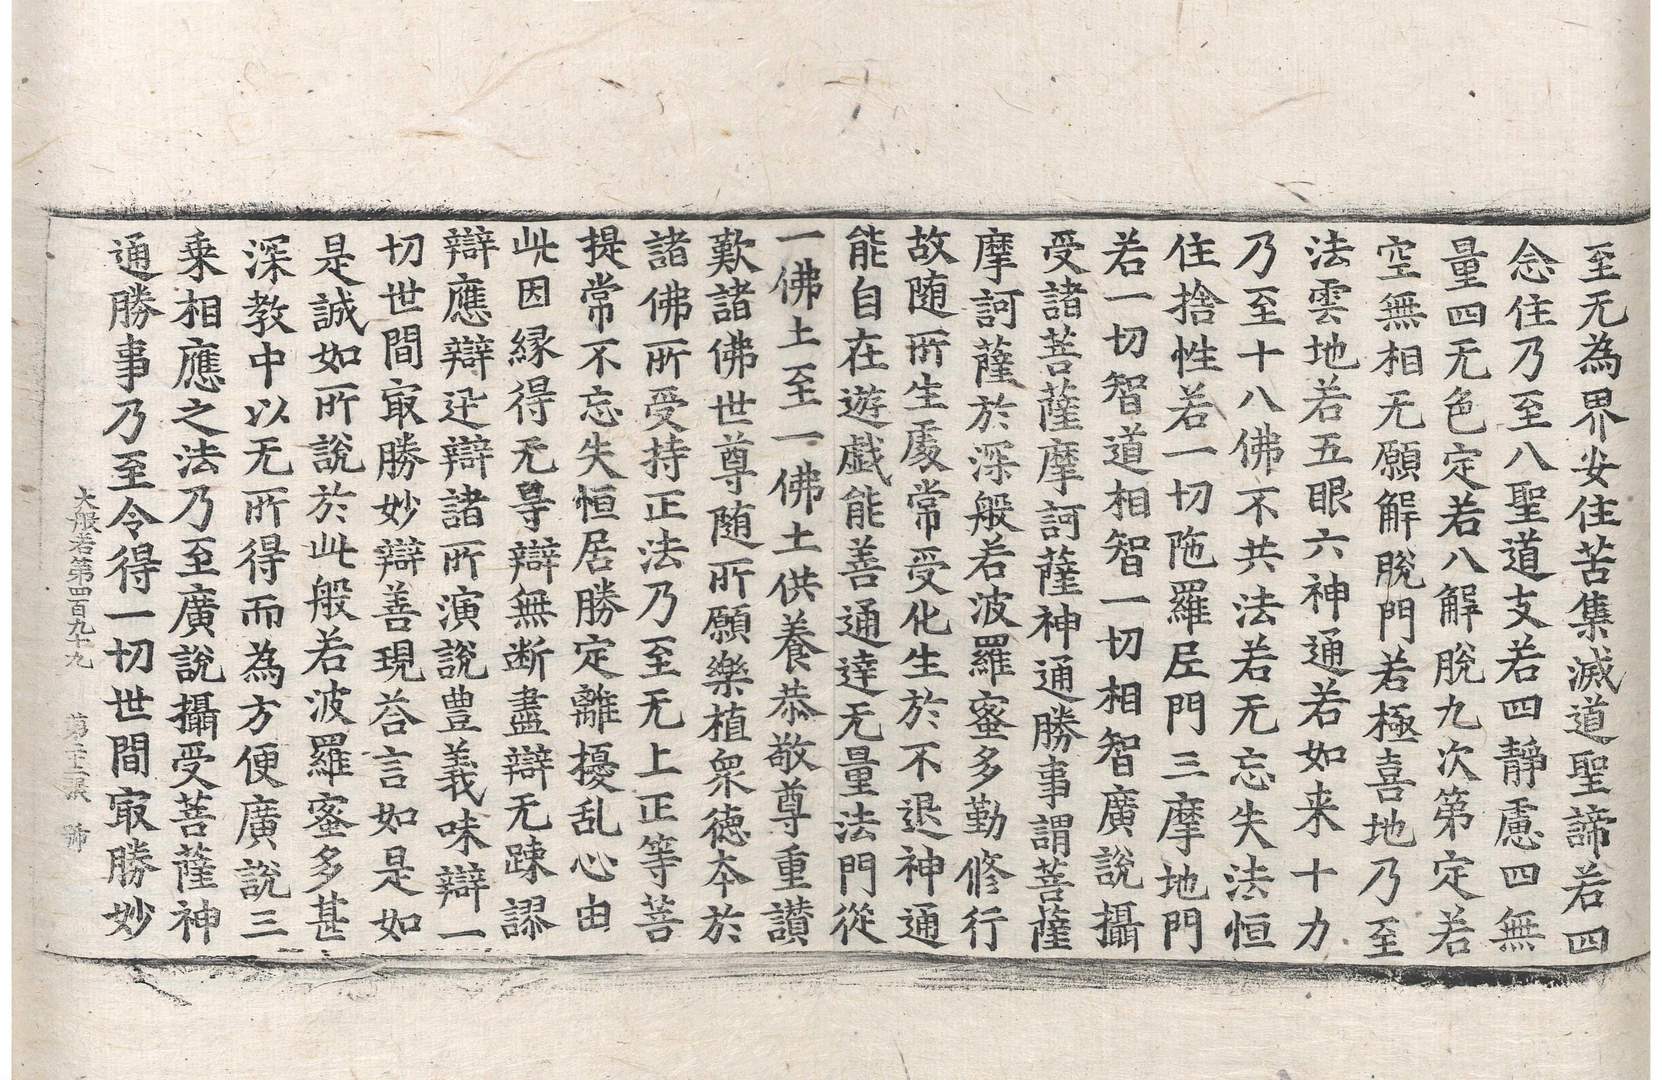 至无為界安住苦集滅道聖諦若四
念住乃至八聖道支若四靜慮四無
量四无色定若八解脫九次第定若
空無相无願解脫門若極喜地乃至
法雲地若五眼六神通若如来十力
乃至十八佛不共法若无忘失法恒
住捨性若一切陁羅尼門三摩地門
若一切智道相智一切相智廣說攝
受諸菩薩摩訶薩神通勝事謂菩薩
摩訶薩於深般若波羅蜜多勤修行
故随所生處常受化生於不退神通
能自在遊戲能善通達无量法門從
一佛土至一佛土供養恭敬尊重讃
歎諸佛世尊随所願樂植衆德本於
諸佛所受持正法乃至无上正等菩
提常不忘失恒居勝定離擾乱心由
此因緣得无㝵辯無断盡辯无踈謬
辯應辯迅辯諸所演說豊義味辯一
切世間㝡勝妙辯善現荅言如是如
是誠如所說於此般若波羅蜜多甚
深教中以无所得而為方便廣說三
乗相應之法乃至廣說攝受菩薩神
通勝事乃至令得一切世間㝡勝妙
大般若第四百九十九 第 張